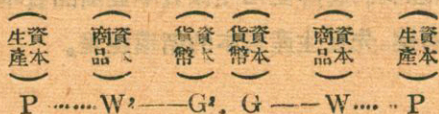 (生產資本) (商品資本) (貨幣資本) (貨幣資本) (商品資本) (生產資本)
P ...... W’——G’. G——W.... P